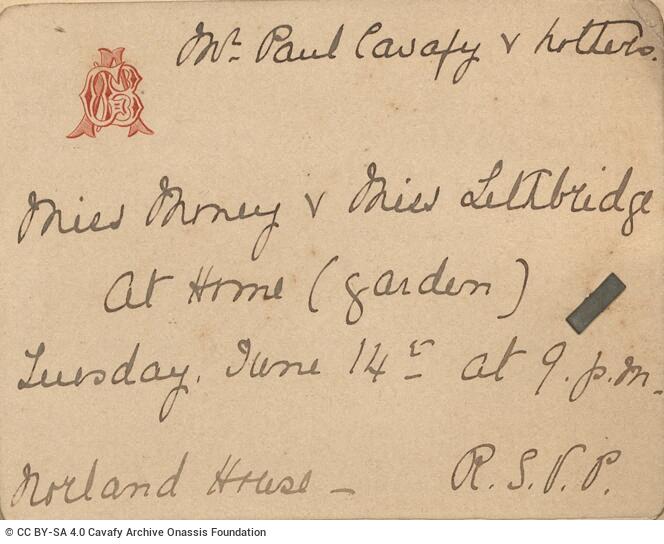 Mr. Paul Cavafy & brothers.
Miss Money & Miss Lethbridge
At Home (garden)
Tuesday, June 14th at 9. p.m.
Norland House –
R.S.V.P.
© CC BY-SA 4.0 Cavafy Archive Onassis Foundation